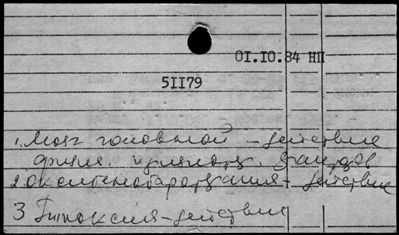 01.10.84 НП
51179
1. Мозг головной – действие
физич.
2 оксигенобаротерапия – действие
3 Гипоксия – действие